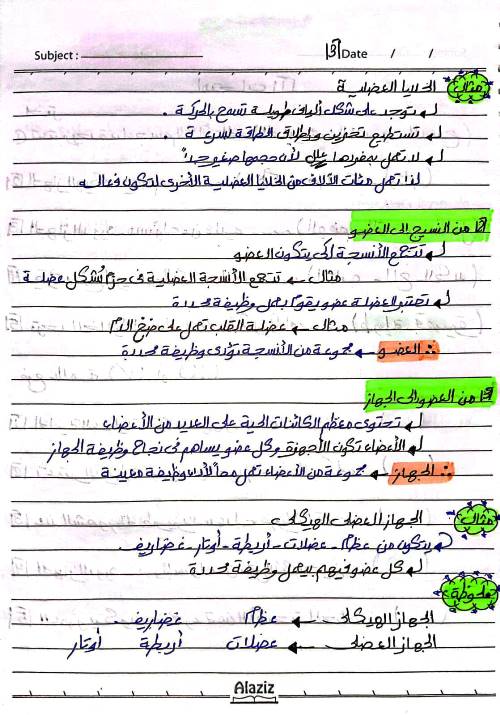 Subject : Date / /
مثال الخلايا العضلية
توجد على شكل ألياف طويلة تسمح بالحركة .
تستطيع تخزين وإطلاق الطاقة بسرعة .
لا تعمل بمفردها لأن حجمها صغير جداً
لذا تعمل مئات الآلاف من الخلايا العضلية الأخرى لتكون فعاله
من النسيج إلى العضو
تتجمع الأنسجة لكى يتكون العضو
مثال ← تتجمع الأنسجة العضلية فى حزم تُشكل عضلة
تعتبر العضلة عضو يقوم بعمل وظيفة محددة
مثال ← عضلة القلب تعمل على ضخ الدم
∴ العضو ← مجموعة من الأنسجة تؤدى وظيفة محددة
من العضو إلى الجهاز
تحتوى معظم الكائنات الحية على العديد من الأعضاء
الأعضاء تكون الأجهزة وكل عضو يساهم فى نجاح وظيفة الجهاز
∴ الجهاز ← مجموعة من الأعضاء تعمل معاً لأداء وظيفة معينة
مثال الجهاز العضلى الهيكلى
يتكون من عظام - عضلات - أربطة - أوتار - غضاريف .
كل عضو فيهم بيعمل وظيفة محددة
ملحوظة
الجهاز الهيكلى ← عظام غضاريف .
الجهاز العضلى ← عضلات أربطة أوتار
Alaziz